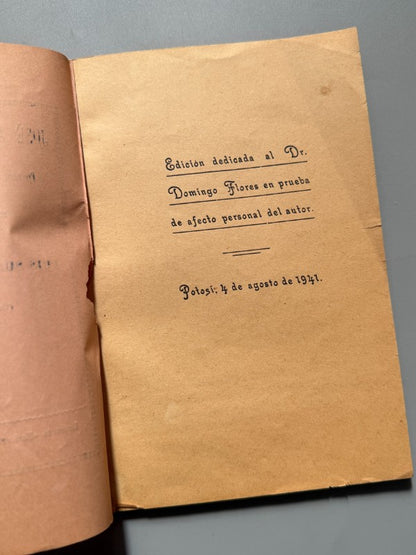 Edición dedicada al Dr.
Domingo Flores en prueba
de afecto personal del autor.
Potosí; 4 de agosto de 1941.